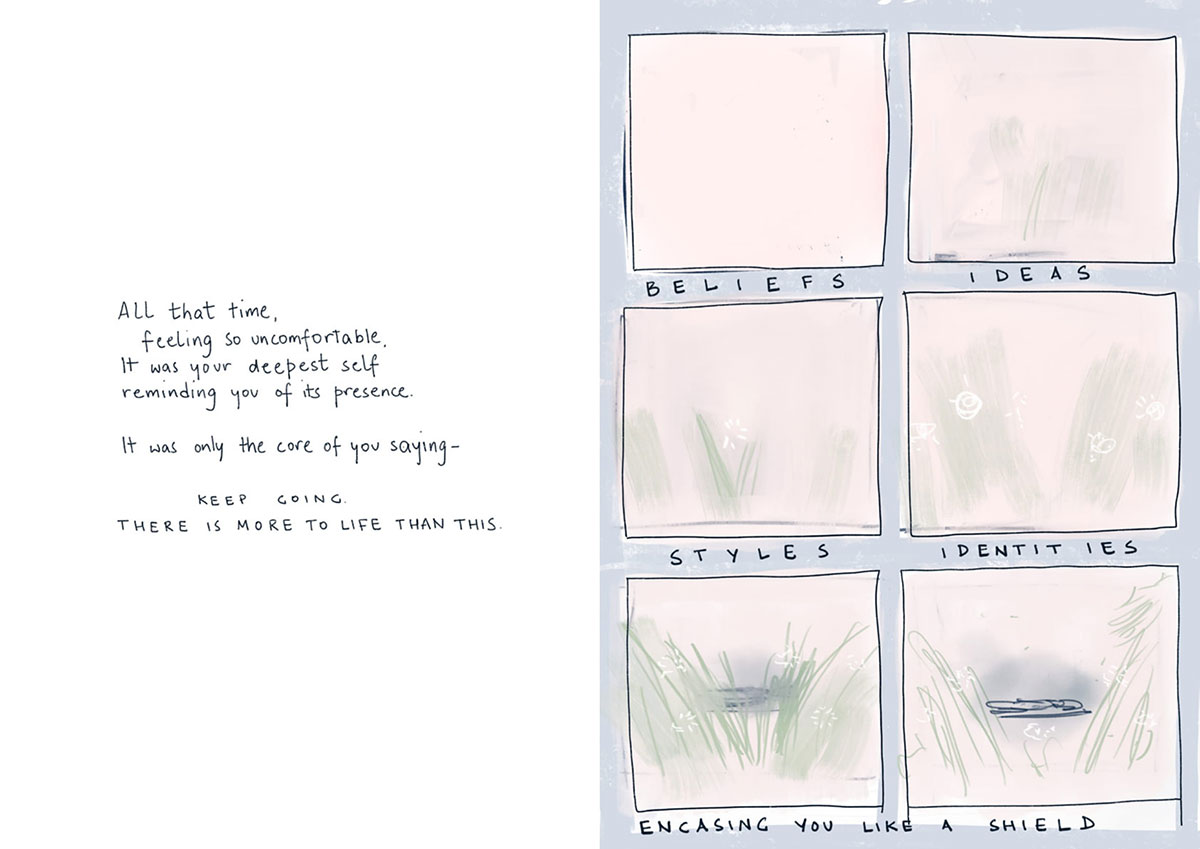 All that time,
feeling so uncomfortable.
It was your deepest self
reminding you of its presence.
It was only the core of you saying-
KEEP GOING.
THERE IS MORE TO LIFE THAN THIS.
BELIEFS
IDEAS
STYLES
IDENTITIES
ENCASING YOU LIKE A SHIELD